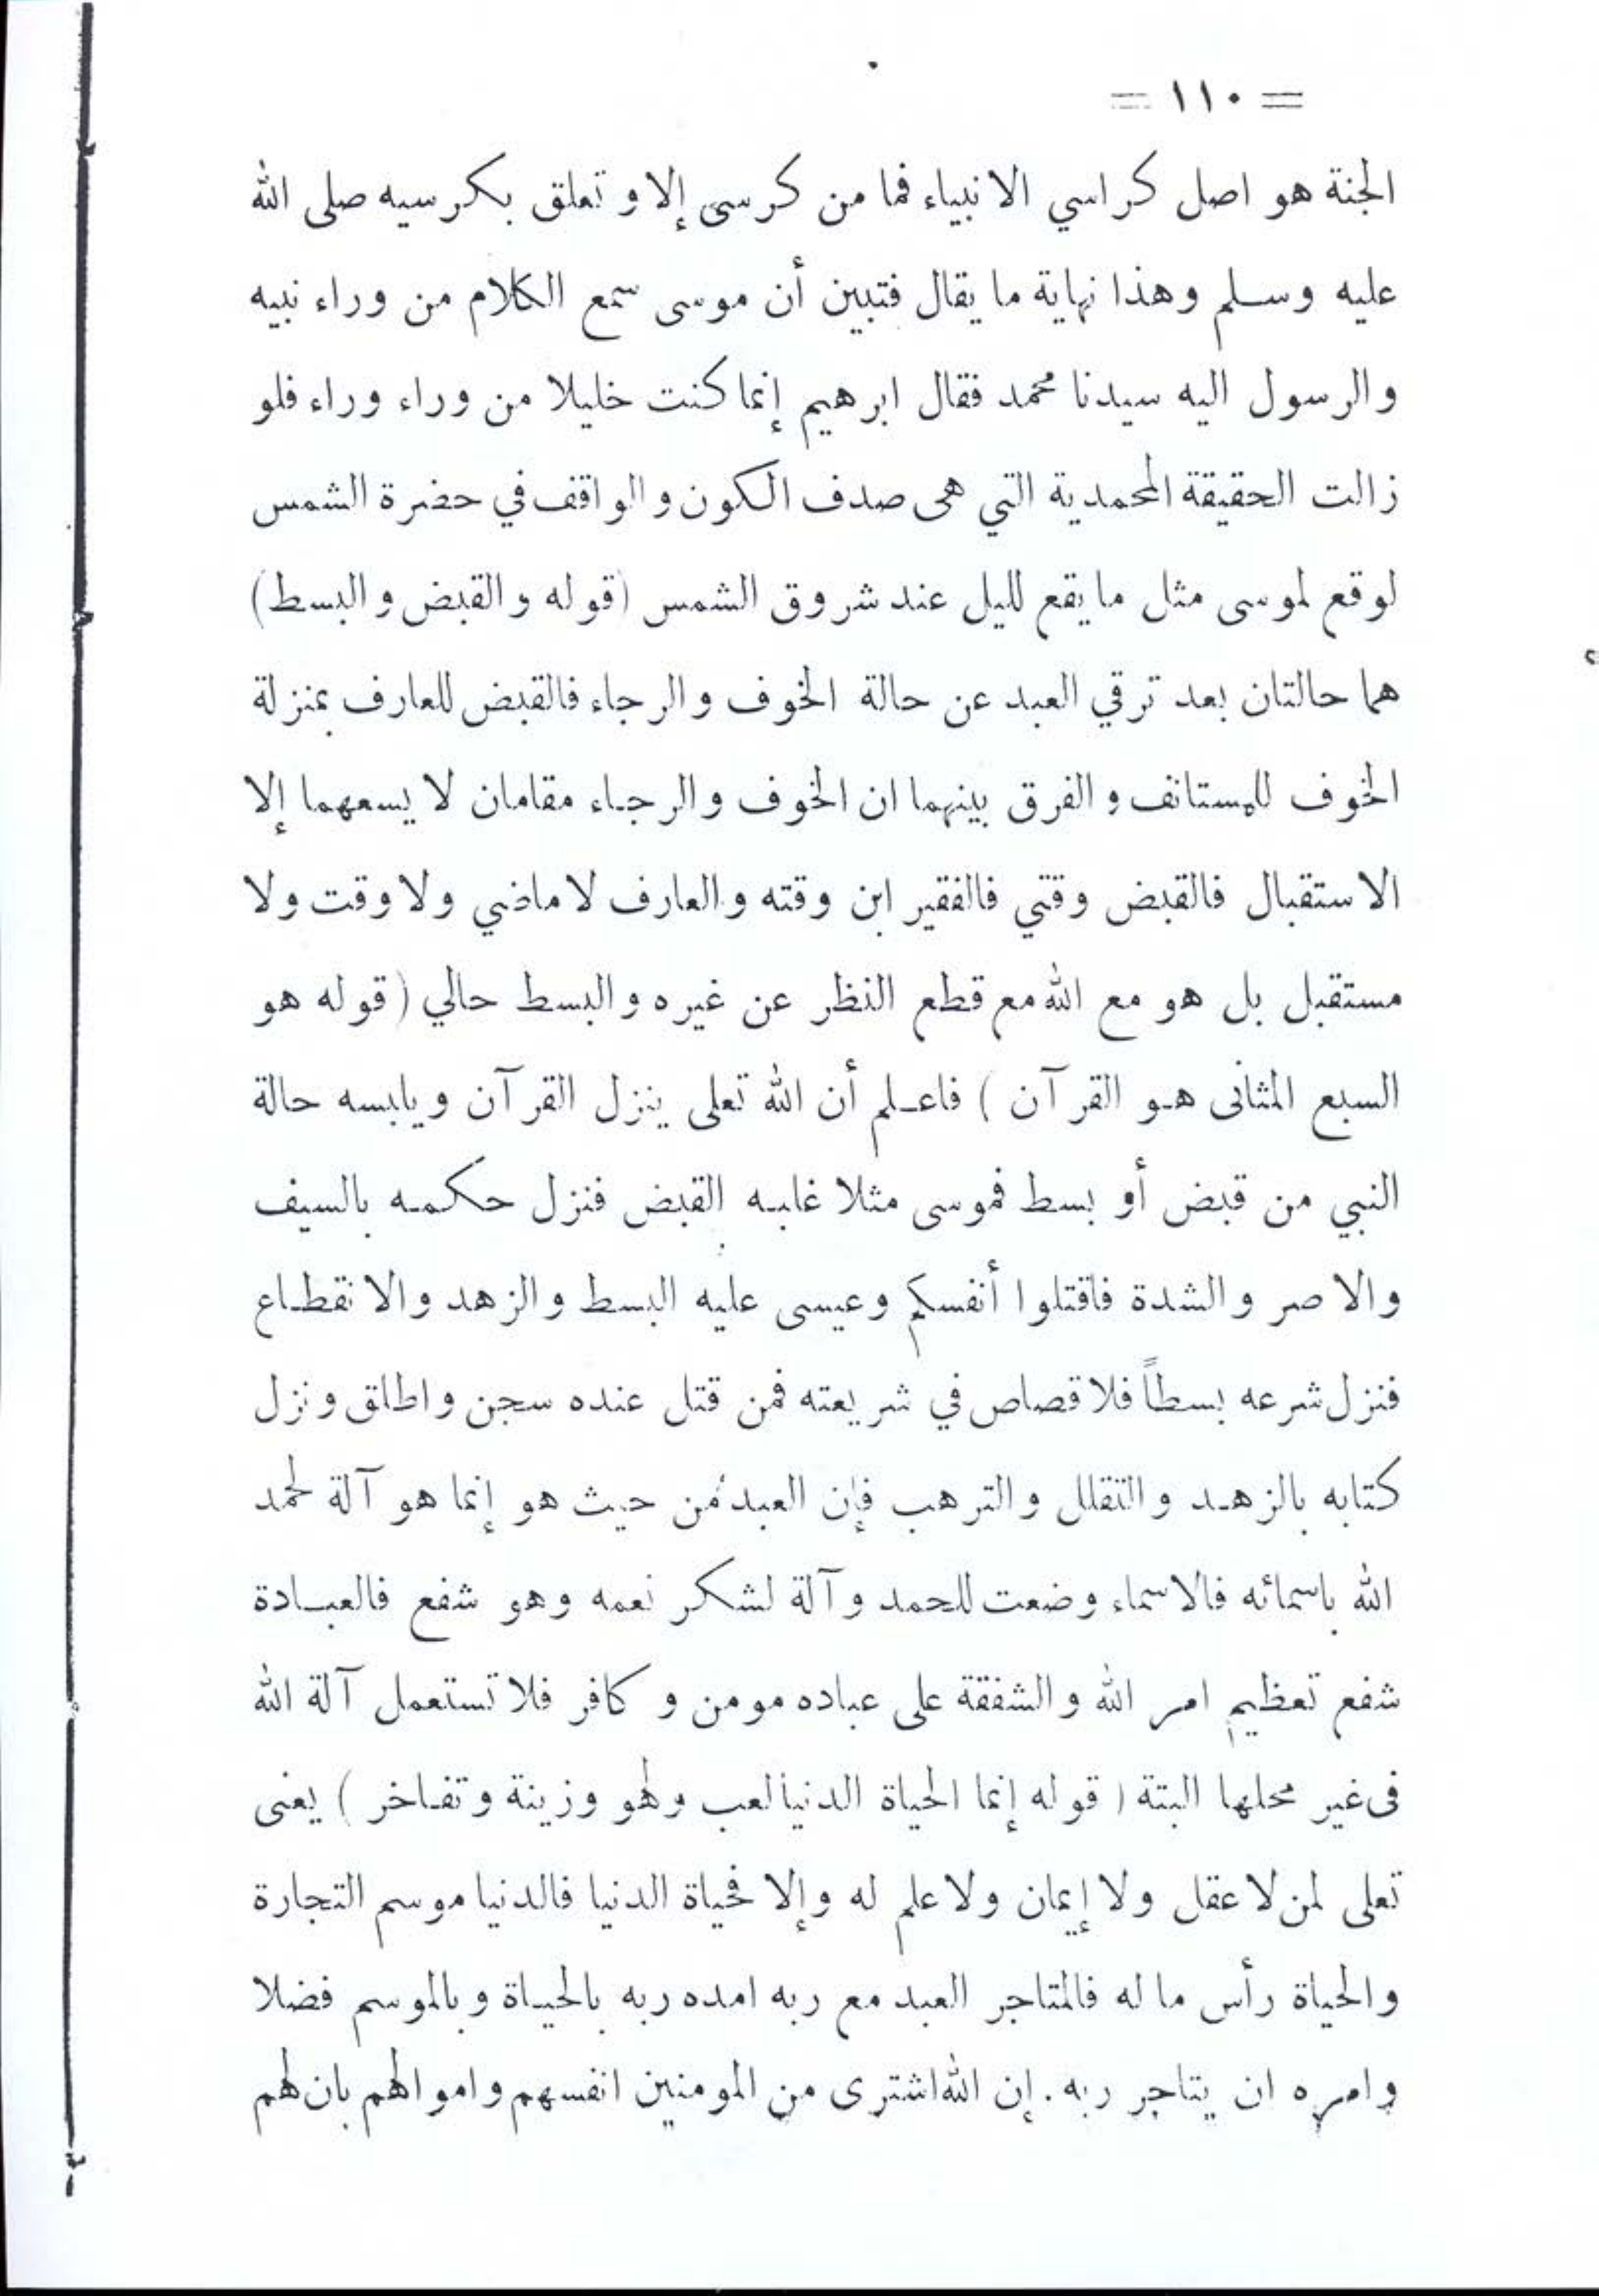 = ١١٠ =
الجنة هو اصل كراسي الانبياء فما من كرسى إلا و تعلق بكرسيه صلى الله
عليه وسلم وهذا نهاية ما يقال فتبين أن موسى سمع الكلام من وراء نبيه
والرسول اليه سيدنا محمد فقال ابرهيم إنما كنت خليلا من وراء وراء فلو
زالت الحقيقة المحمدية التي هى صدف الكون والواقف في حضرة الشمس
لوقع لموسى مثل ما يقع لليل عند شروق الشمس (قوله والقبض والبسط)
هما حالتان بعد ترقي العبد عن حالة الخوف والرجاء فالقبض للعارف بمنزلة
الخوف للمستانف والفرق بينهما ان الخوف والرجاء مقامان لا يسعهما إلا
الاستقبال فالقبض وقتي فالفقير ابن وقته والعارف لا ماضي ولا وقت ولا
مستقبل بل هو مع الله مع قطع النظر عن غيره والبسط حالي (قوله هو
السبع المثانى هو القرآن) فاعلم أن الله تعلى ينزل القرآن ويلبسه حالة
النبي من قبض أو بسط فموسى مثلا غلبه القبض فنزل حكمه بالسيف
والاصر والشدة فاقتلوا أنفسكم وعيسى عليه البسط والزهد والانقطاع
فنزل شرعه بسطاً فلا قصاص في شريعته فمن قتل عنده سجن واطلق ونزل
كتابه بالزهد والتقلل والترهب فإن العبد من حيث هو إنما هو آلة لحمد
الله باسمائه فالاسماء وضعت للحمد وآلة لشكر نعمه وهو شفع فالعبادة
شفع تعظيم امر الله والشفقة على عباده مومن و كافر فلا تستعمل آلة الله
فى غير محلها البتة (قوله إنما الحياة الدنيا لعب ولهو وزينة وتفاخر) يعنى
تعلى لمن لا عقل ولا إيمان ولا علم له وإلا فحياة الدنيا فالدنيا موسم التجارة
والحياة رأس ماله فالمتاجر العبد مع ربه امده ربه بالحياة وبالموسم فضلا
وامره ان يتاجر ربه. إن الله اشترى من المومنين انفسهم واموالهم بان لهم